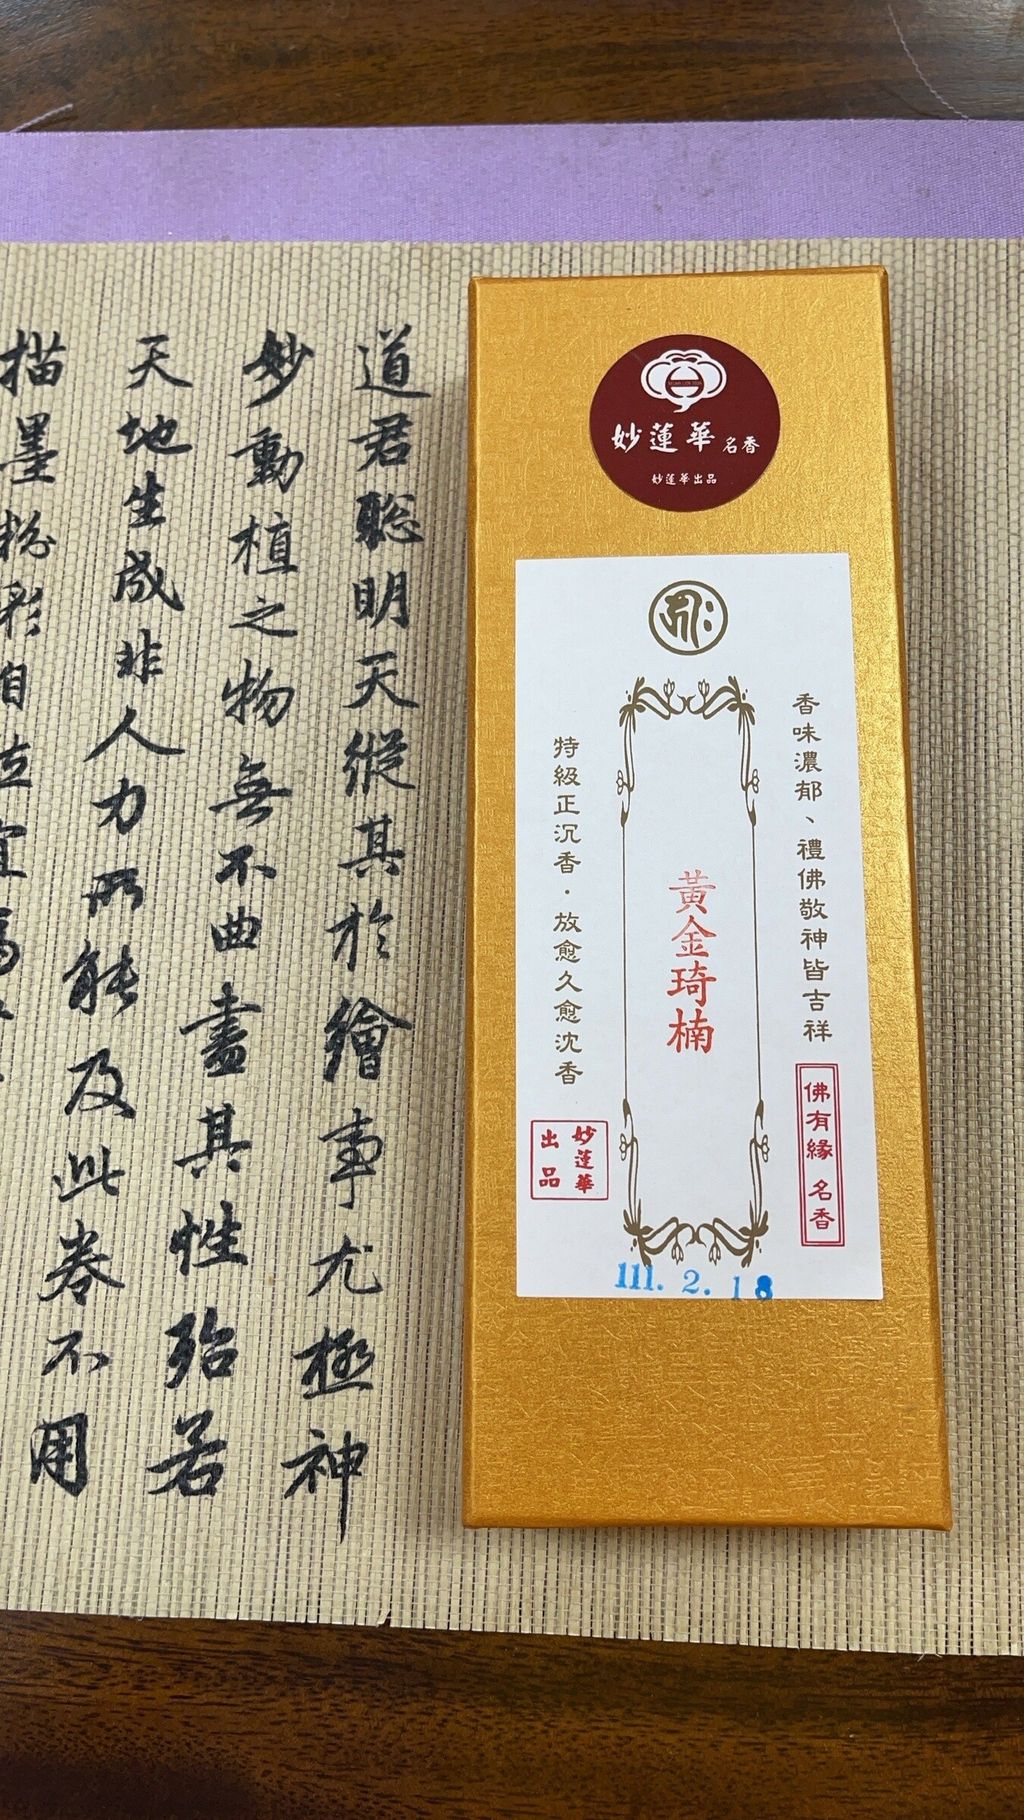 道君聰明天縱其於繪事尤極神
妙動植之物無不曲盡其性殆若
天地生成非人力所能及此卷不用
描墨粉彩自
宜
妙蓮華 名香
妙蓮華出品
香味濃郁、禮佛敬神皆吉祥
黃金琦楠
特級正沉香．放愈久愈沈香
佛有緣 名香
妙蓮華
出品
111. 2. 18